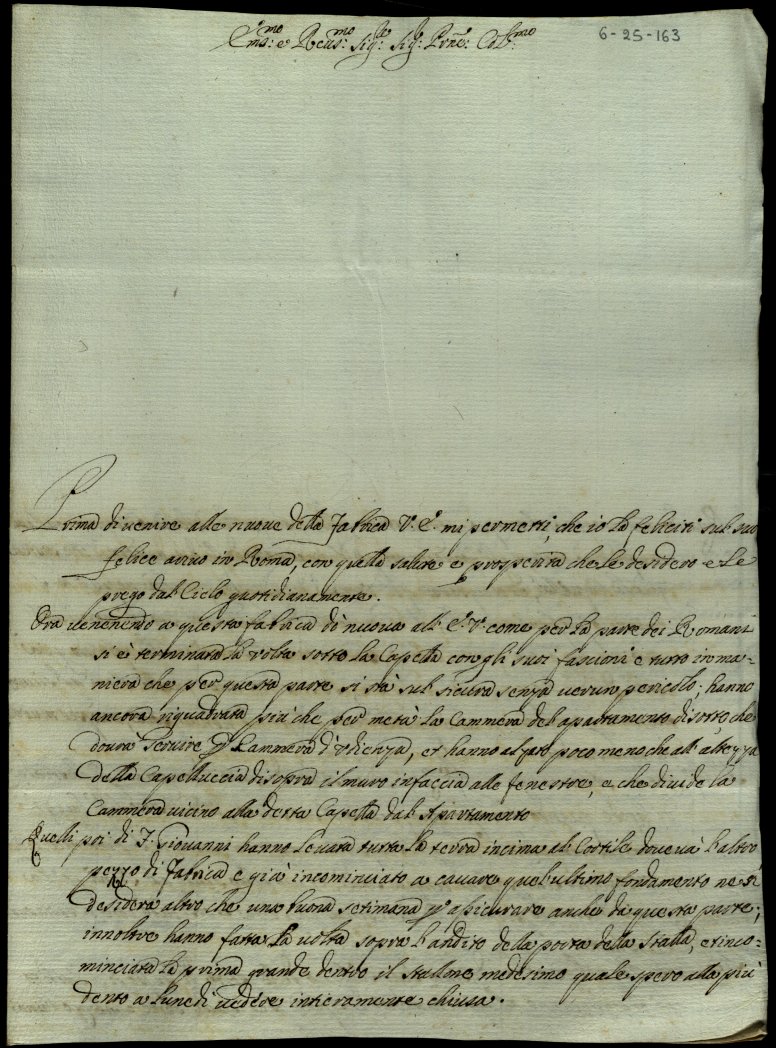 6-25-163
E.mo e Rev.mo Sig.re Sig.re Prñe. Col.mo
Prima di venire alle nuove della Fabrica V.E. mi permetti, che io la feliciti sul suo
felice arivo in Roma, con quella salute e prosperità che le desidero e le
prego dal Cielo quotidianamente.
Ora venenendo a questa fabrica dò nuova all' E.V. come per la parte dei Romani
si è terminata la volta sotto la Capella con gli suoi fascioni e tutto in ma=
niera che per questa parte si stà sul sicura senza verun pericolo; hanno
ancora riquadrata più che per metà la Cammera del apartamento di sotto, che
dovrà servire p. Cammera d'Udienza, et hanno alzato poco meno che all' altezza
della Capelluccia di sopra il muro in faccia alle fenestre, e che divide la
Cammera vicino alla detta Capella dal Apartamento
Quelli poi di S. Giovanni hanno levata tutta la terra in cima al Cortile dove và l'altro
pezzo di Fabrica e già incominciato a cavare quel ultimo fondamento ne si
desidera altro che una buona setimana p. assicurare anche da questa parte;
innoltre hanno fatta la volta sopra l'andito della porta della Stalla, et inco=
minciata la prima grande dentro il Stallone medesimo quale spero alla più
dento a Lunedì vedere intieramente chiusa.